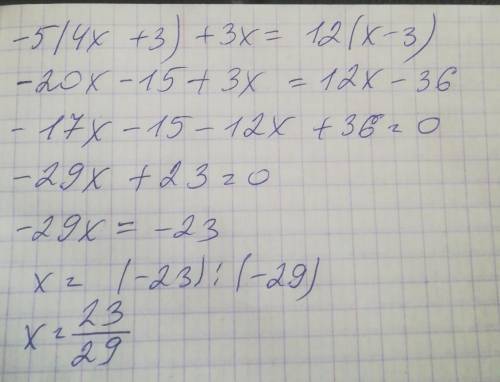 -5(4x +3) +3x = 12(x-3)
-20x -15 + 3x = 12x - 36
-17x -15 -12x +36 = 0
-29x +23 = 0
-29x = -23
x = (-23) : (-29)
x = 23/29